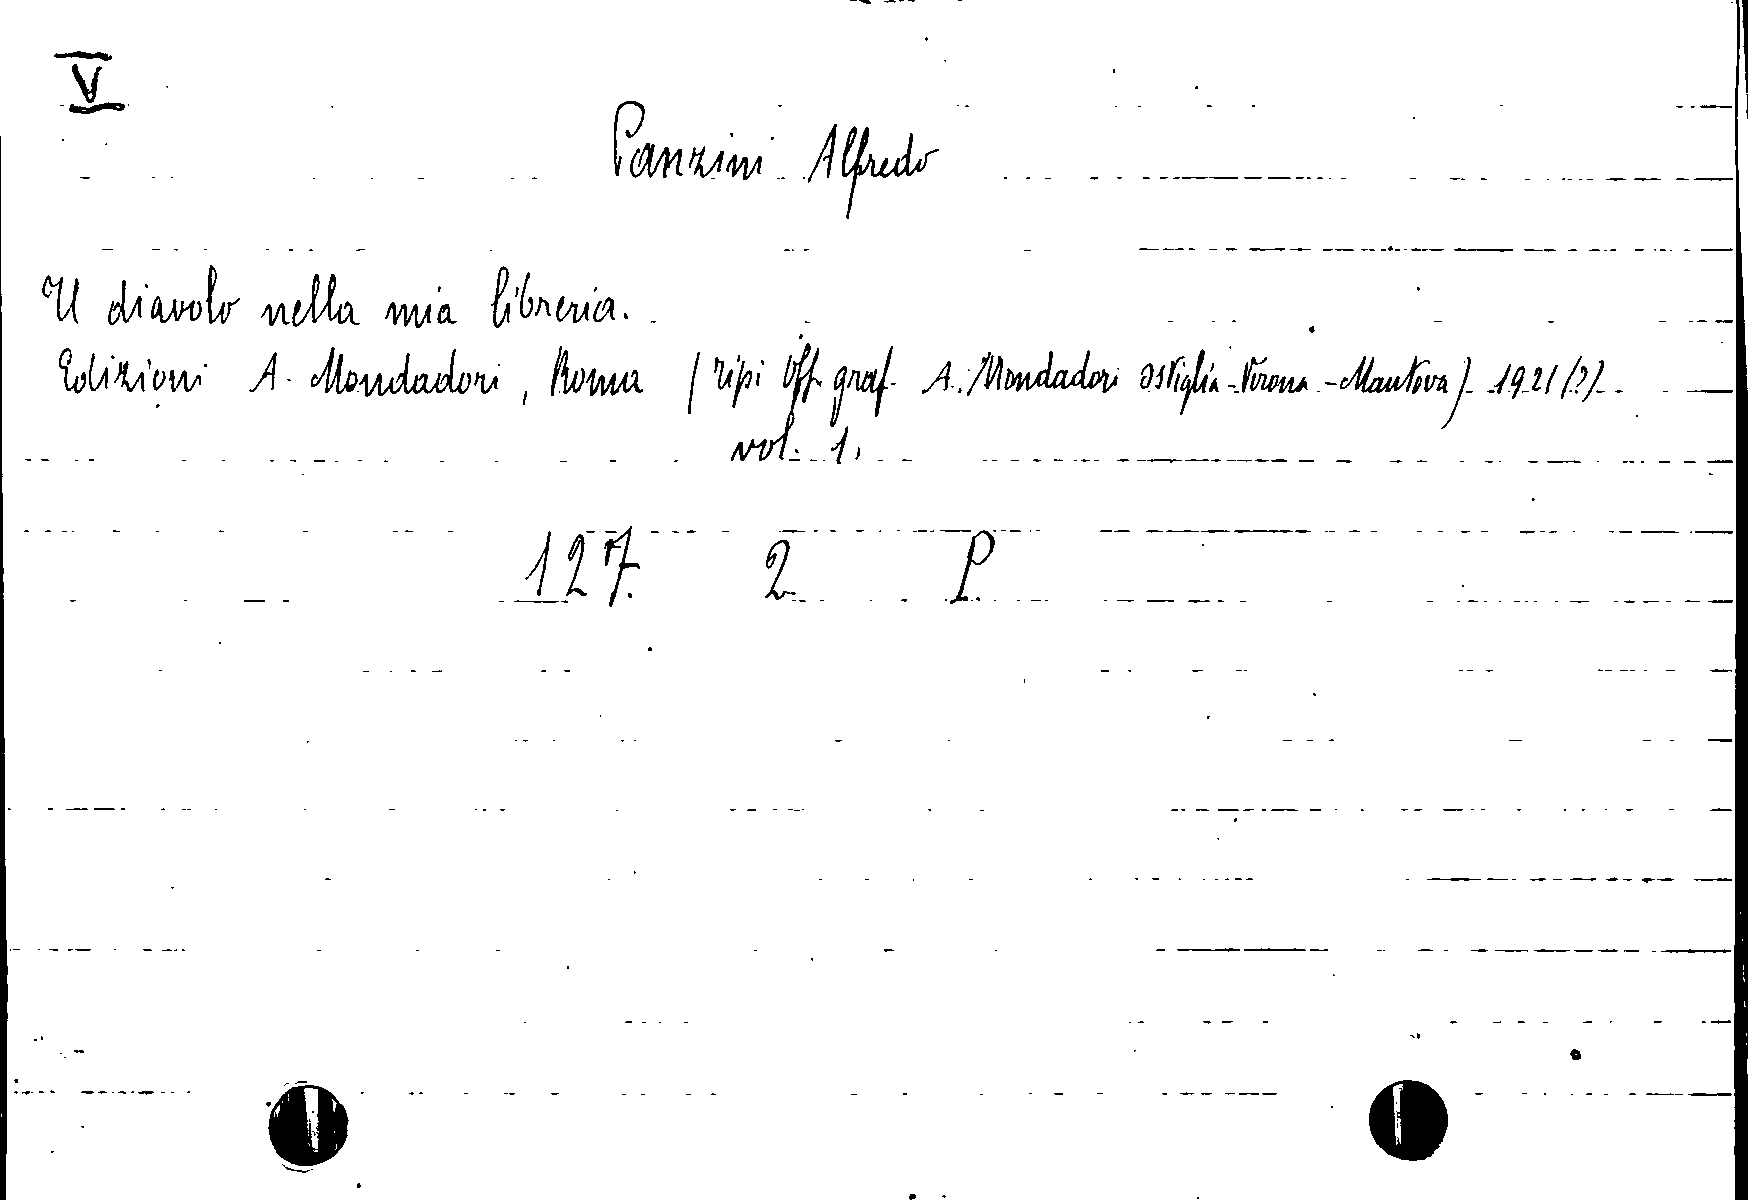 V
Panzini Alfredo
Il diavolo nella mia libreria.
Edizioni A. Mondadori, Roma (Tipi Off. graf. A. Mondadori Ostiglia-Verona-Mantova) 1921(?)
vol. 1.
127. 2 P.